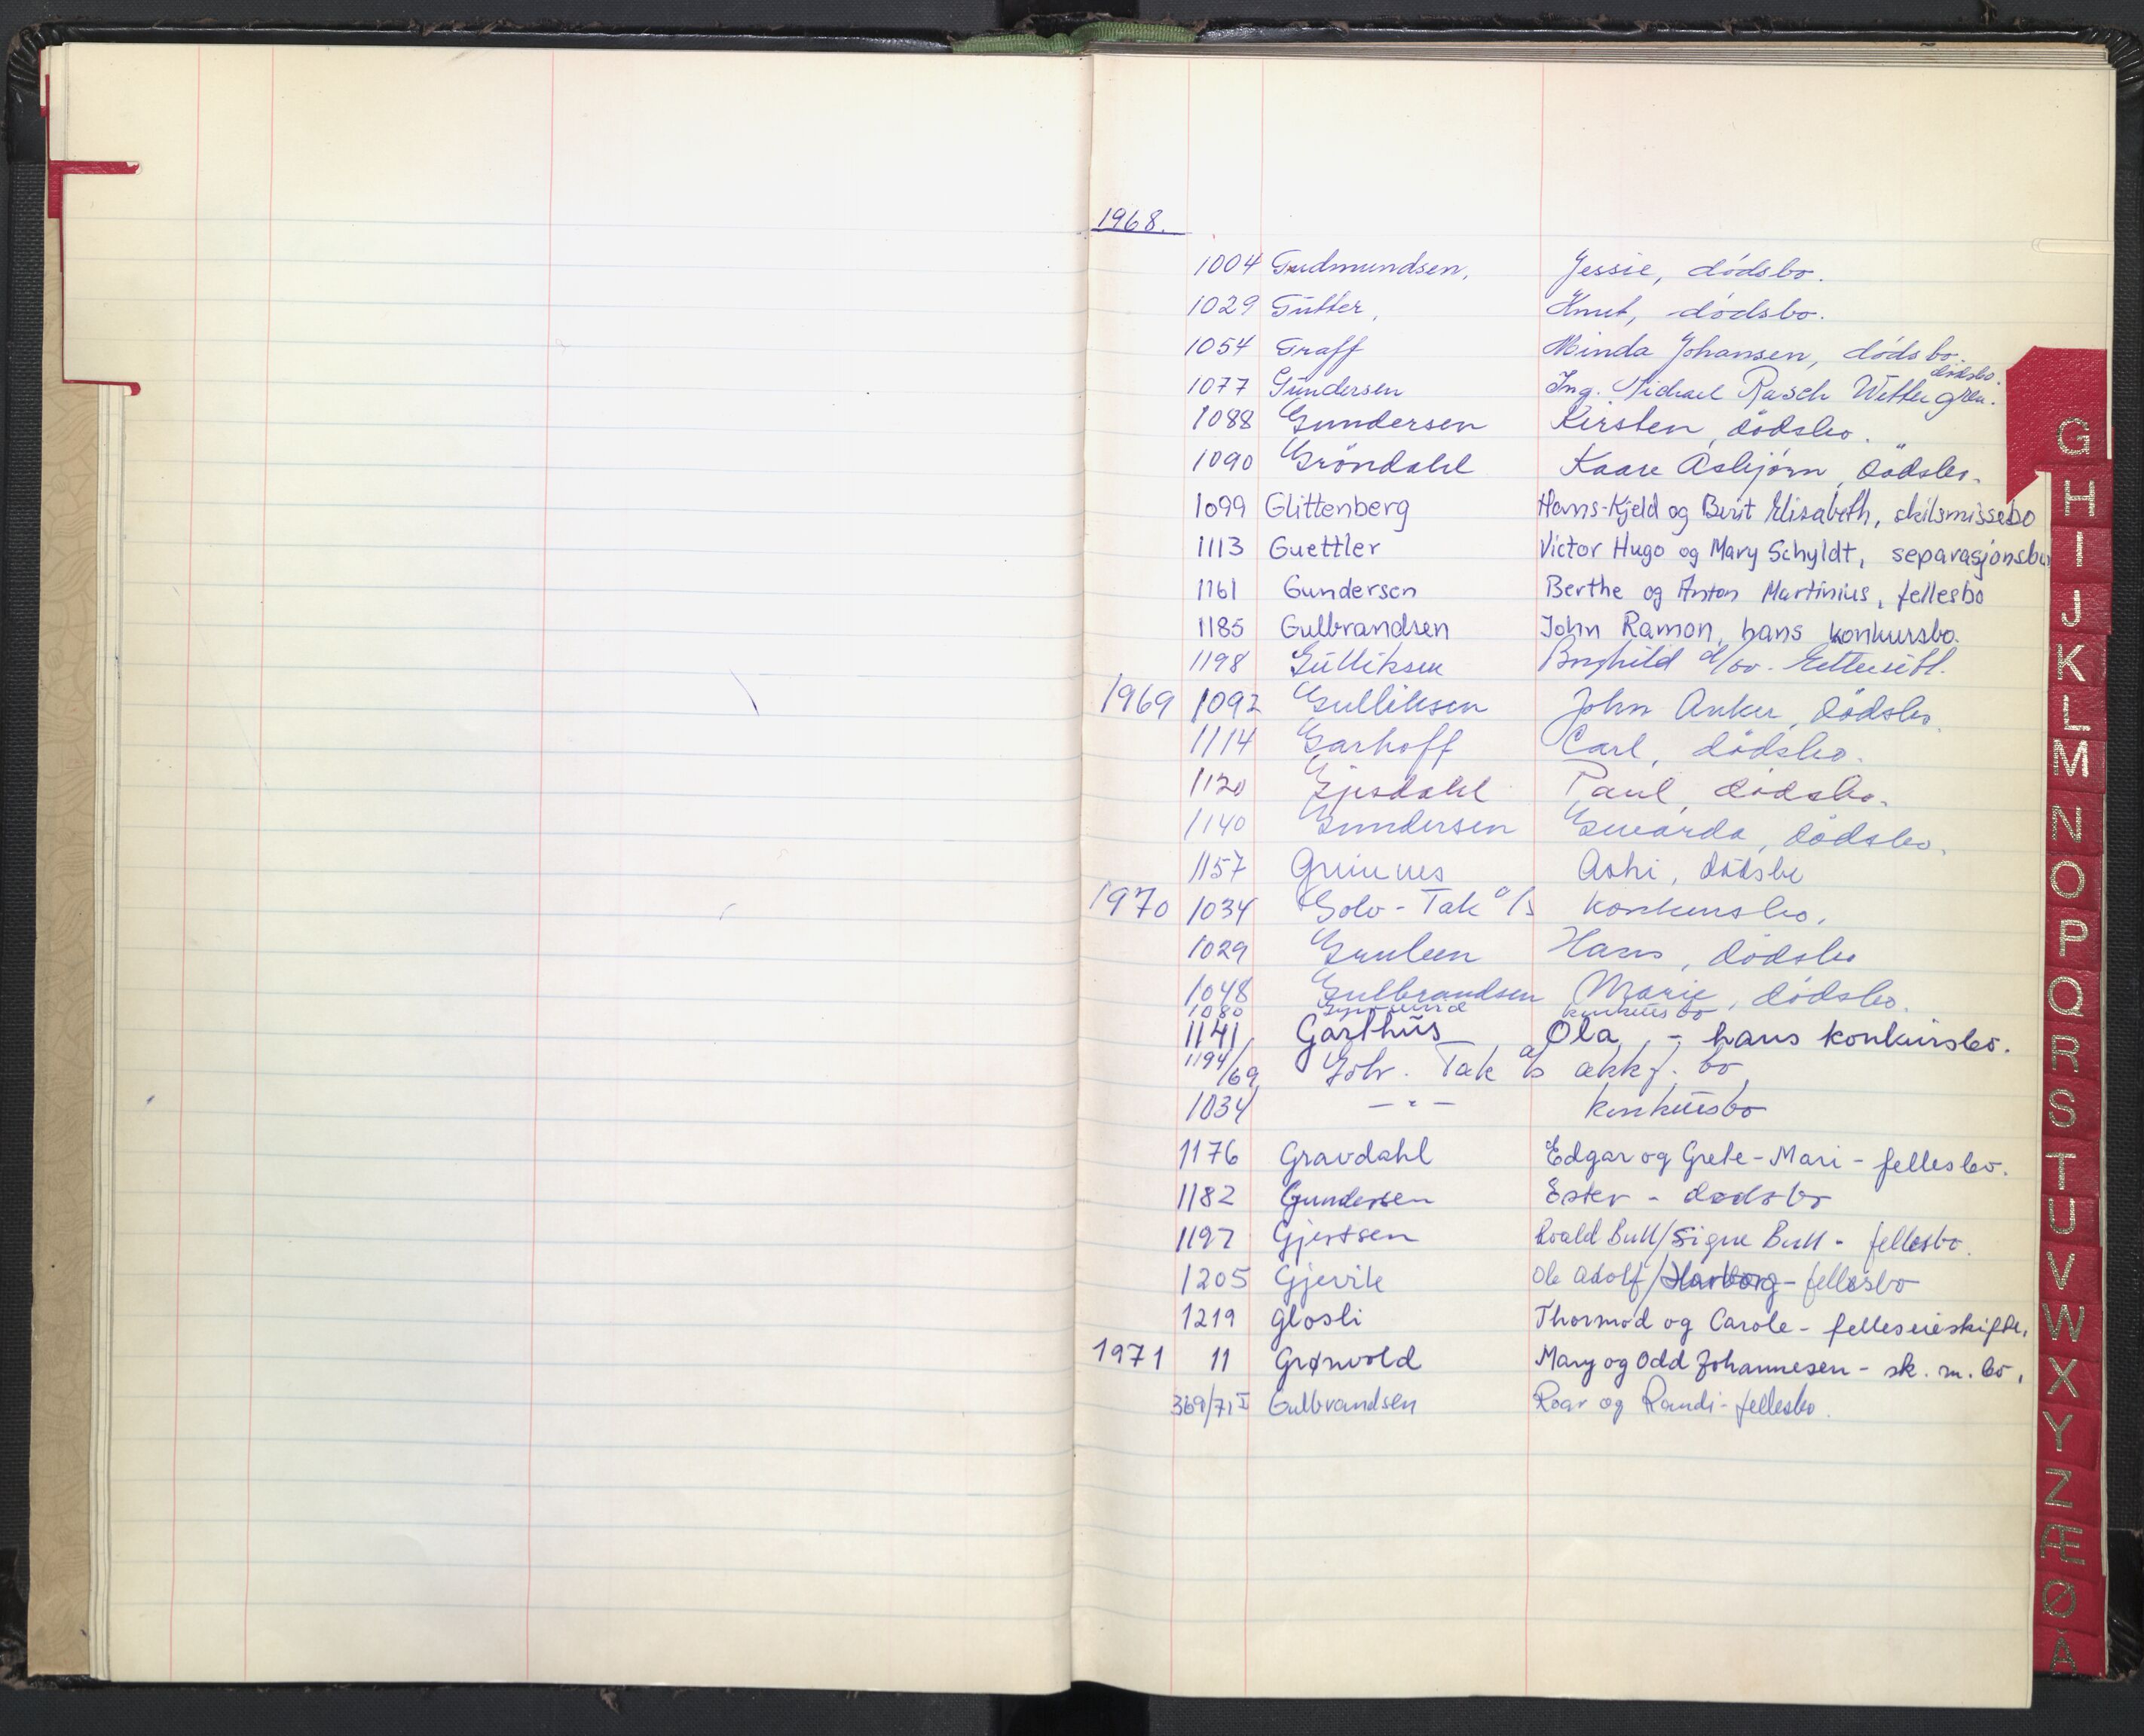 1968.
1004 Gudmundsen, Jessie, dödsbo.
1029 Gütter, Knut, dödsbo.
1054 Graff Minda Johansen, dödsbo.
dödsbo.
1077 Gündersen Ing. Michael Rasch Wettergren.
1088 Gundersen Kirsten, dödsbo.
1090 Gröndahl Kaare Asbjörn, dödsbo.
1099 Glittenberg Hans-Kjeld og Berit Elisabeth, skilsmissebo
1113 Guettler Victor Hugo og Mary Schyldt, separasjonsbo
1161 Gundersen Berthe og Anton Martinius, fellesbo
1185 Gulbrandsen John Ramon, hans konkursbo.
1198 Gülliksen Borghild d/bo.
1969 1092 Gulliksen John Anker, dödsbo.
1114 Garhoff Carl, dödsbo.
1120 Gjesdahl Paul, dödsbo.
1140 Gundersen dödsbo.
1157 dödsbo
1970 1034 Golv-Tak a/s konkursbo.
1029 Hans, dödsbo
1048 Gulbrandsen Marie, dödsbo.
1080 konkursbo
1141 Garthüs Ola, - hans konkursbo.
1194/69 Golv. Tak a/s akkj. bo
1034 — " — konkürsbo
1176 Gravdahl Edgar og Grete-Mari - fellesbo.
1182 Gundersen Ester - dødsbo
1197 Gjertsen Roald Bull/Signe Bull - fellesbo.
1205 Gjervik Ole Adolf/Harborg - fellesbo
1219 Glosli Thormod og Carole - felleseieskifte.
1971 11 Grønvold Mary og Odd Johannesen - sk. m. bo.
369/71 I Gulbrandsen Roar og Randi - fellesbo.
G
H
I
J
K
L
M
N
O
P
Q
R
S
T
U
V
W
X
Y
Z
Æ
Ø
Å